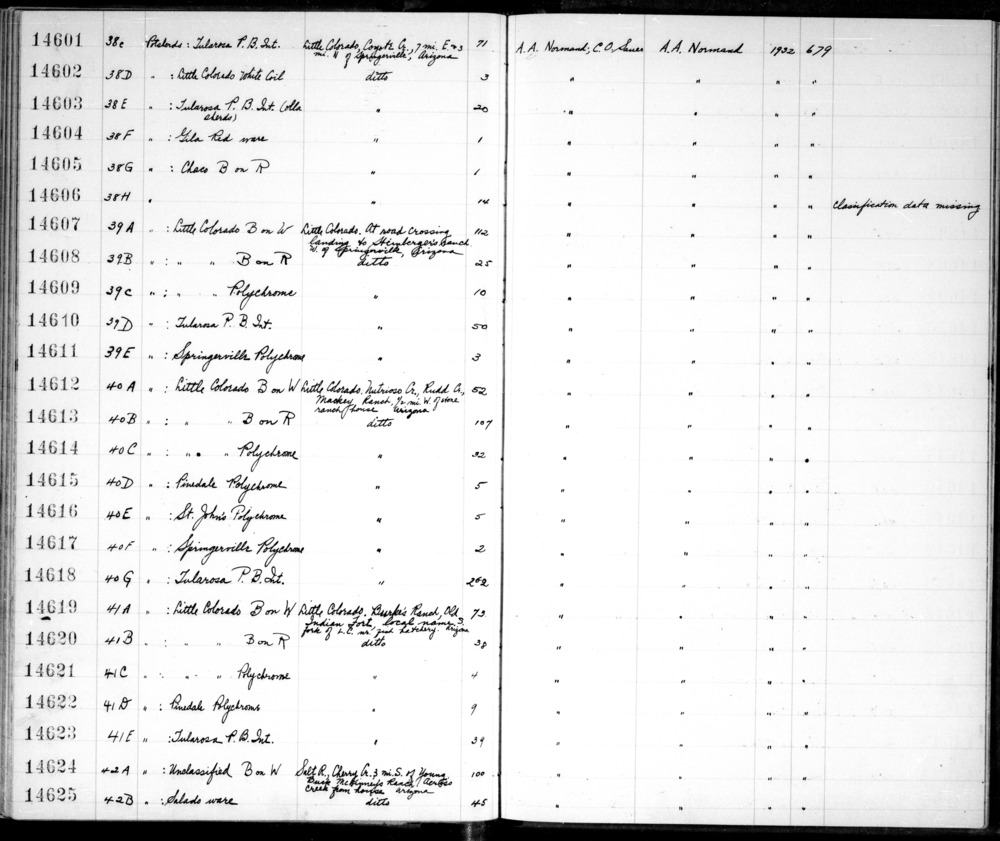 14601 38c Potsherds: Tularosa P. B. Int. Little Colorado, Coyote Cr., 7 mi. E + 3 mi. N of Springerville, Arizona 71 A. A. Normand; C. O. Sauer A. A. Normand 1932 679
14602 38D " : Little Colorado White Coil ditto 3 " " " "
14603 38E " : Tularosa P. B. Int. (olla sherds) " 20 " " " "
14604 38F " : Gila Red ware " 1 " " " "
14605 38G " : Chaco B on R " 1 " " " "
14606 38H " " 14 " " " " Classification data missing
14607 39A " : Little Colorado B on W Little Colorado. At road crossing landing to Hernberger's Ranch W. of Springerville, Arizona 112 " " " "
14608 39B " : " " B on R ditto 25 " " " "
14609 39c " : " " Polychrome " 10 " " " "
14610 39D " : Tularosa P. B. Int. " 50 " " " "
14611 39E " : Springerville Polychrome " 3 " " " "
14612 40A " : Little Colorado B on W Little Colorado. Nutrioso Cr., Rudd Cr., Mackey Ranch, 1/2 mi. W. of store ranch house Arizona 52 " " " "
14613 40B " : " " B on R ditto 107 " " " "
14614 40C " : " " Polychrome " 32 " " " "
14615 40D " : Pinedale Polychrome " 5 " " " "
14616 40E " : St. John's Polychrome " 5 " " " "
14617 40F " : Springerville Polychrome " 2 " " " "
14618 40G " : Tularosa P. B. Int. " 262 " " " "
14619 41A " : Little Colorado B on W Little Colorado. Ranch, Old Indian Fort, local name S. fork of L.C. nr. fish hatchery. Arizona 73 " " " "
14620 41B " : " " B on R ditto 38 " " " "
14621 41C " : " " Polychrome " 4 " " " "
14622 41D " : Pinedale Polychrome " 9 " " " "
14623 41E " : Tularosa P. B. Int. " 39 " " " "
14624 42A " : Unclassified B on W Salt R., Cherry Cr. 3 mi. S. of Young, Buck McKinney's Ranch, Across creek from house Arizona 100 " " " "
14625 42B " : Salado ware ditto 45 " " " "